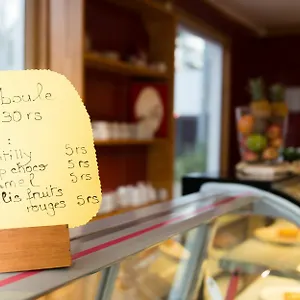 boule
30 rs
:
tilly 5 rs
p choco 5 rs
mel 5 rs
lis fruits
rouges 5 rs